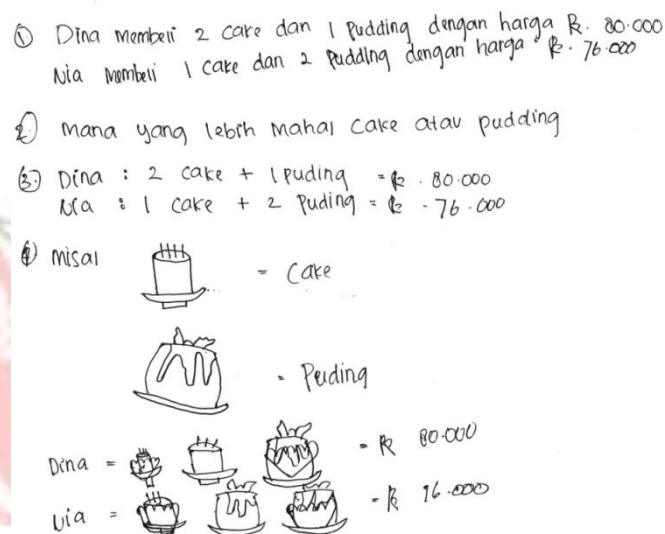 ① Dina membeli 2 cake dan 1 Pudding dengan harga Rp. 80.000
Nia membeli 1 cake dan 2 Pudding dengan harga Rp. 76.000
2) mana yang lebih mahal cake atau pudding
③ Dina : 2 cake + 1 puding = Rp . 80.000
Nia : 1 cake + 2 Puding = Rp . 76.000
④ misal
= Cake
= Puding
Dina = = Rp 80.000
Nia = = Rp 76.000